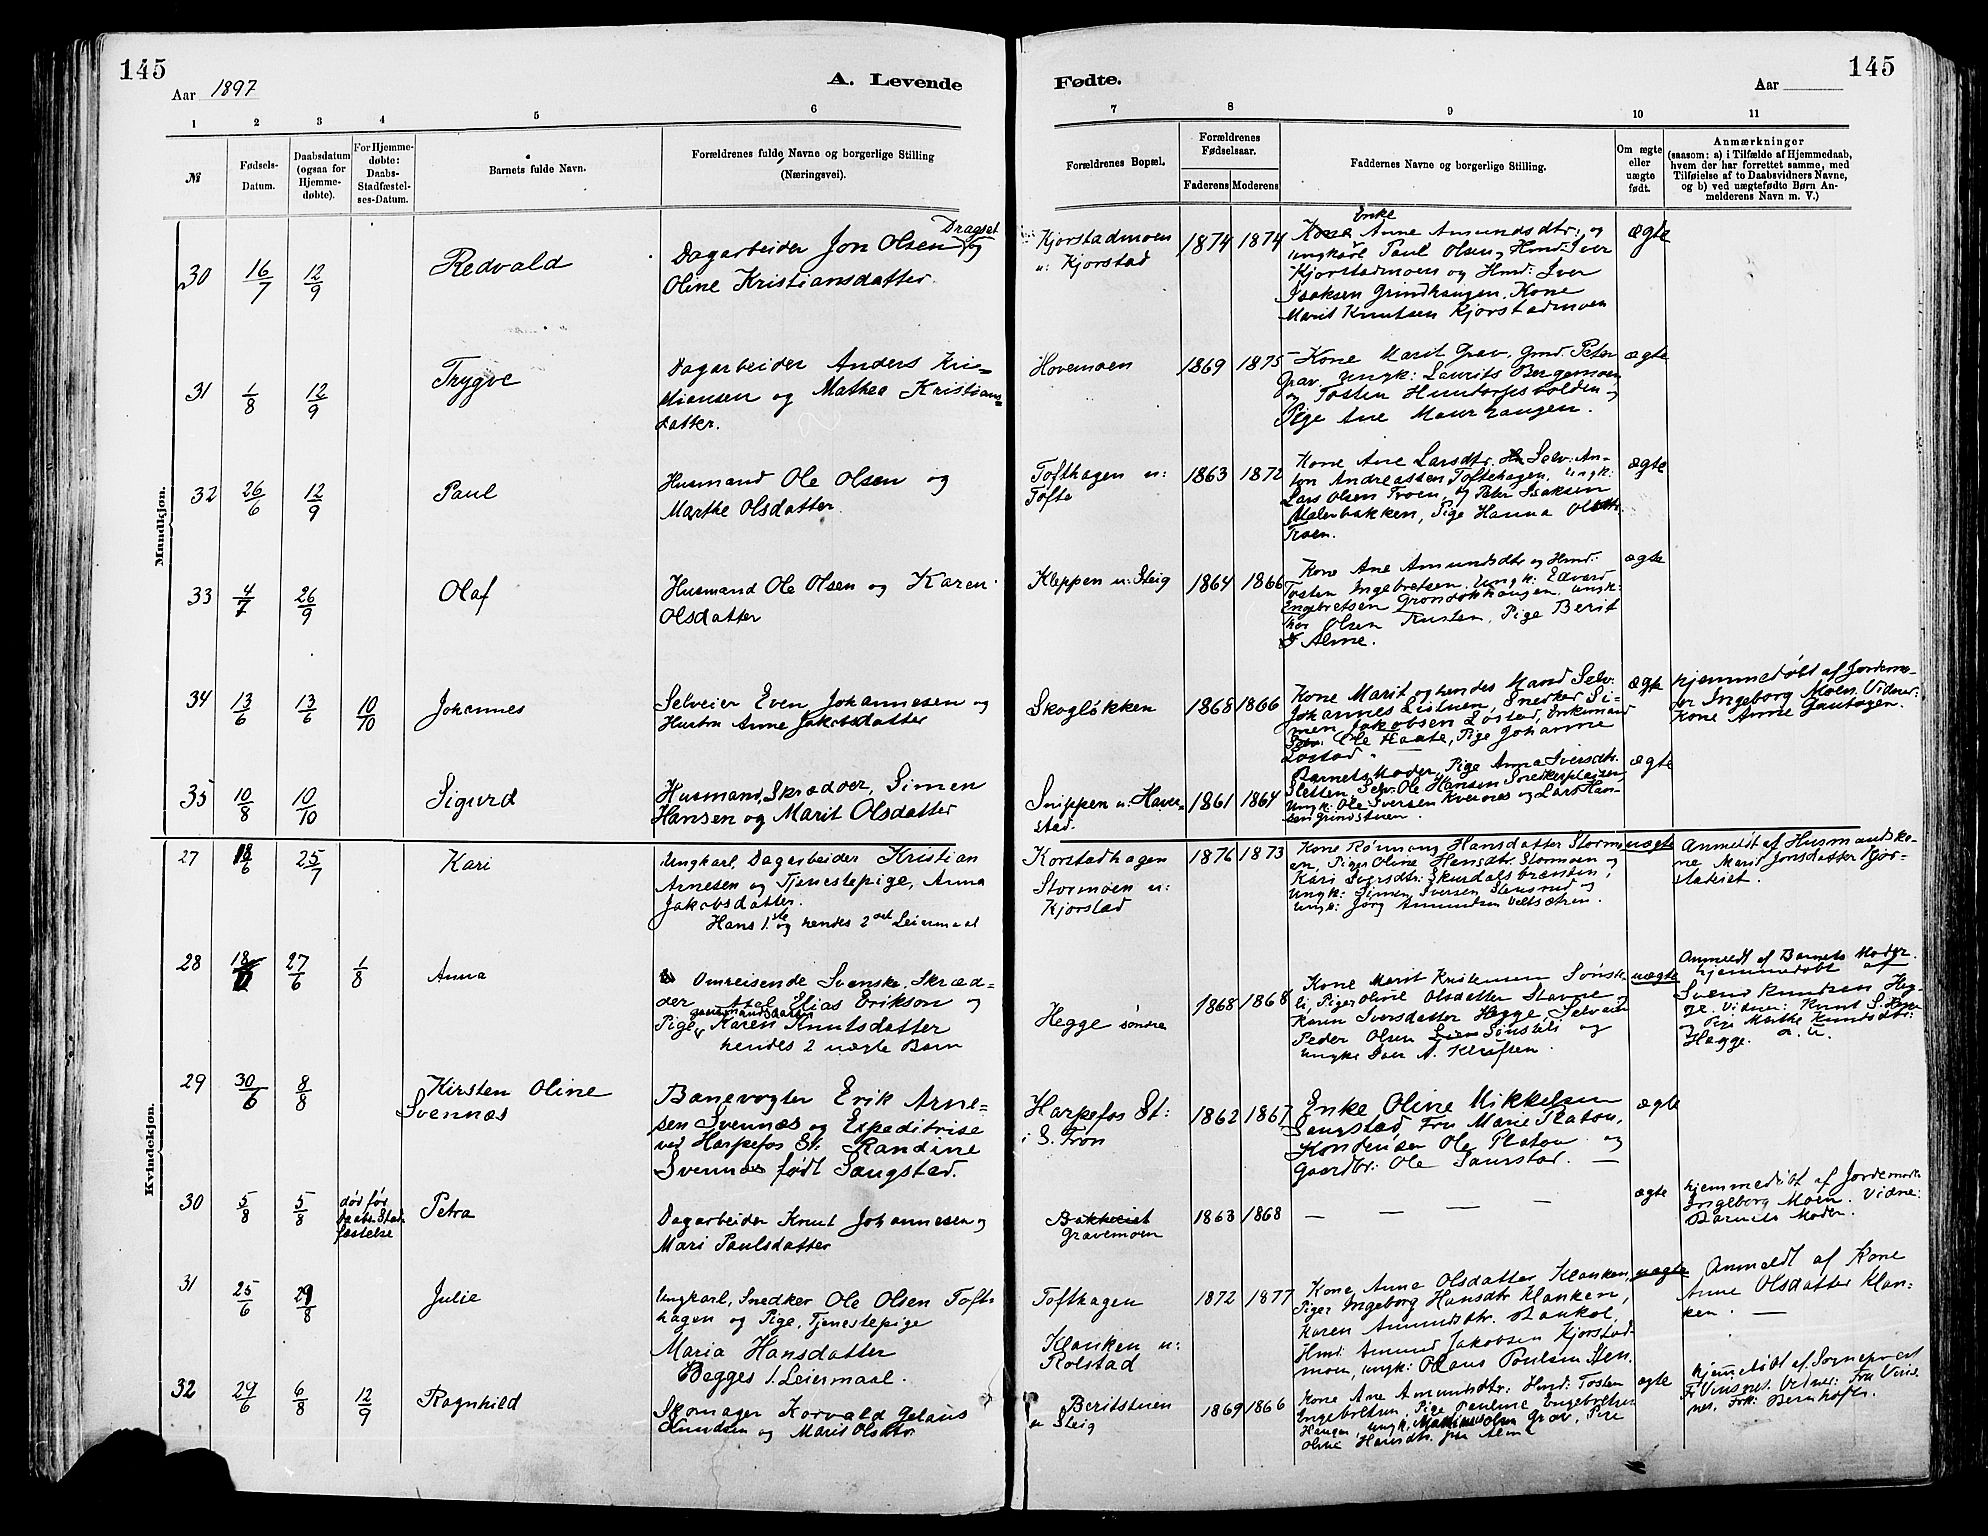 145
Aar 1897
A. Levende
Fødte.
Aar
145
1 2 3 4 5 6 7 8 9 10 11
№
Fødsels-
Datum.
Daabsdatum
(ogsaa for
Hjemme-
døbte).
For Hjemme-
døbte:
Daabs-
Stadfæstel-
ses-Datum.
Barnets fulde Navn.
Forældrenes fulde Navne og borgerlige Stilling
(Næringsvei).
Forældrenes Bopæl.
Forældrenes
Fødselsaar.
Faderens Moderens
Faddernes Navne og borgerlige Stilling.
Om ægte
eller
uægte
født.
Anmærkninger
(saasom: a) i Tilfælde af Hjemmedaab,
hvem der har forrettet samme, med
Tilføielse af to Daabsvidners Navne,
og b) ved uægtefødte Børn An-
melderens Navn m. V.)
Mandkjøn.
30 16/7 12/9
Redvald
Dragset
Dagarbeider Jon Olsen og
Oline Kristiansdatter.
Kjorstadmoen
u: Kjorstad
1874 1874
Enke
Kone Anne Amundsdtr: og
ungkarl Paul Olsen, Hmd: Iver
Kjorstadmoen og Hmd: Iver
Isaksen Grindhaugen. Kone
Marit Knutsen Kjorstadmoen
ægte
31 1/8 12/9
Trygve
Dagarbeider Anders Kri-
stiansen og Mathea Kristians-
datter.
Hovemoen
1869 1875
Kone Marit Grav, Gmd. Peter
Grav. Ungk: Laurits Bergemoen
og Tosten Hundorpsbolden og
Pige Ane Maurhaugen.
ægte
32 26/6 12/9
Paul
Husmand Ole Olsen og
Marthe Olsdatter.
Tofthagen u:
Tofte
1863 1872
Kone Ane Larsdtr. Selv: An-
ton Andreassen Toftehagen, ungk:
Lars Olsen Troen, og Peter Isaksen
Mælerbakken, Pige Hanna Olsdtr.
Troen.
ægte
33 4/7 26/9
Olaf
Husmand Ole Olsen og Karen
Olsdatter
Kleppen u: Steig
1864 1866
Kone Ane Amundsdtr og Hmd:
Tosten Ingebretsen. Ungk: Edvard
Engebretsen Grøndokhaugen, ungk:
Olsen Rusten, Pige Berit
Alme.
ægte
34 13/6 13/6 10/10
Johannes
Selveier Even Johannesen og
Hustru Anne Jakobsdatter
Skogløkken
1868 1866
Kone Marit og hendes Mand Selv:
Johannes Listuen, Snedker Si-
men Jakobsen Løstad, Enkemand
Selv: Ole Haate, Pige Johanne
Løstad
ægte
hjemmedøbt af Jordemo-
der Ingeborg Moen. Vidner:
Kone Anne Gautøgen.
35 10/8 10/10
Sigurd
Husmand, Skrædder, Simen
Hansen og Marit Olsdatter
Snippen u: Haver-
stad.
1861 1864
Barnets Moder, Pige Anna Iversdtr.
Sletten, Selv: Ole Hansen Snedkerpladsen
Ungk: Ole Iversen Kvernes og Lars Han-
sen Grindstuen.
ægte
Kvindekjøn.
27 18/6 25/7
Kari
Ungkarl, Dagarbeider Kristian
Arnesen og Tjenestepige, Anna
Jakobsdatter.
Hans 1ste og hendes 2det Leiermaal
Korstadhagen
Stormoen u:
Kjorstad
1876 1873
Kone Rønnoug Hansdatter Stormo
en, Piger Oline Hansdtr. Stormoen og
Kari Iversdtr: Skurdalsbrænden,
Ungk: Simen Iversen Stensrud og
Ungk: Jørg Amundsen Veltsætren.
uægte
Anmeldt af Husmandsko-
ne Marit Jonsdatter Kjor-
stadeiet.
28 18/6 27/6 1/8
Anna
Omreisende Svenske, Skræd-
der Axel Elias Erikson og
gaardmandsdatter
Pige Karen Knutsdatter
hendes 2 uægte Barn
Hegge søndre
1868 1868
Kone Marit Kristensen Sønste-
li, Piger Oline Olsdatter Stavne
Karen Iversdatter Hegge, Selveier
Peder Olsen Sønsteli og
ungk: Iver A. Kleiften.
uægte
Anmeldt af Barnets Moder.
hjemmedøbt af
Svend Knudsen Heg-
ge. Vidner: Knut S. Hegge
og Pige Marthe Knudsdtr:
Hegge. a. u.
29 30/6 8/8
Kirsten Oline
Svennæs
Banevogter Erik Arne-
sen Svennæs og Expeditrise
ved Harpefos St. Randine
Svennæs født Sangstad.
Harpefos St:
i S. Fron
1862 1867
Enke Oline Mikkelsen
Sangstad, Fru Marie Platou,
Konduktør Ole Platou og
Gaardbr: Ole Saurstad. —
ægte
30 5/8 5/8
død før
Daabs Stad-
fæstelse
Petra
Dagarbeider Knut Johannesen og
Mari Paulsdatter
Bakkeeiet
Gravemoen
1863 1868
— — — —
ægte
hjemmedøbt af Jordemoder
Ingeborg Moen. Vidne:
Barnets Moder.
31 25/6 29/8
Julie
Ungkarl, Snedker Ole Olsen Toft-
hagen og Pige, Tjenestepige
Maria Hansdatter
Begges 1. Leiermaal.
Tofthagen
Klanken u:
Rolstad
1872 1877
Kone, Anne Olsdatter Klanken,
Piger Ingeborg Hansdtr Klanken,
Karen Amundsdtr. Baukol,
Hmd: Amund Jakobsen Kjorstad-
moen, ungk: Olaus Poulsen Sten.
uægte
Anmeldt af Kone
Anne Olsdatter Klan-
ken. —
32 29/6 6/8 12/9
Ragnhild
Skomager Korvald Gelaus
Knudsen og Marit Olsdtr
Beritstuen
u Steig
1869 1866
Kone Ane Amundsdtr: Hmd: Tosten
Engebretsen, Pige Pauline Engebretsen
Haugen, ungk, Mathias Olsen Grav, Pige
Oline Hansdtr.
ægte
hjemmedøbt af Sogneprest
Fr Vinsnes. Vidner: Fru Vins-
nes. Frk: Bernhoft.